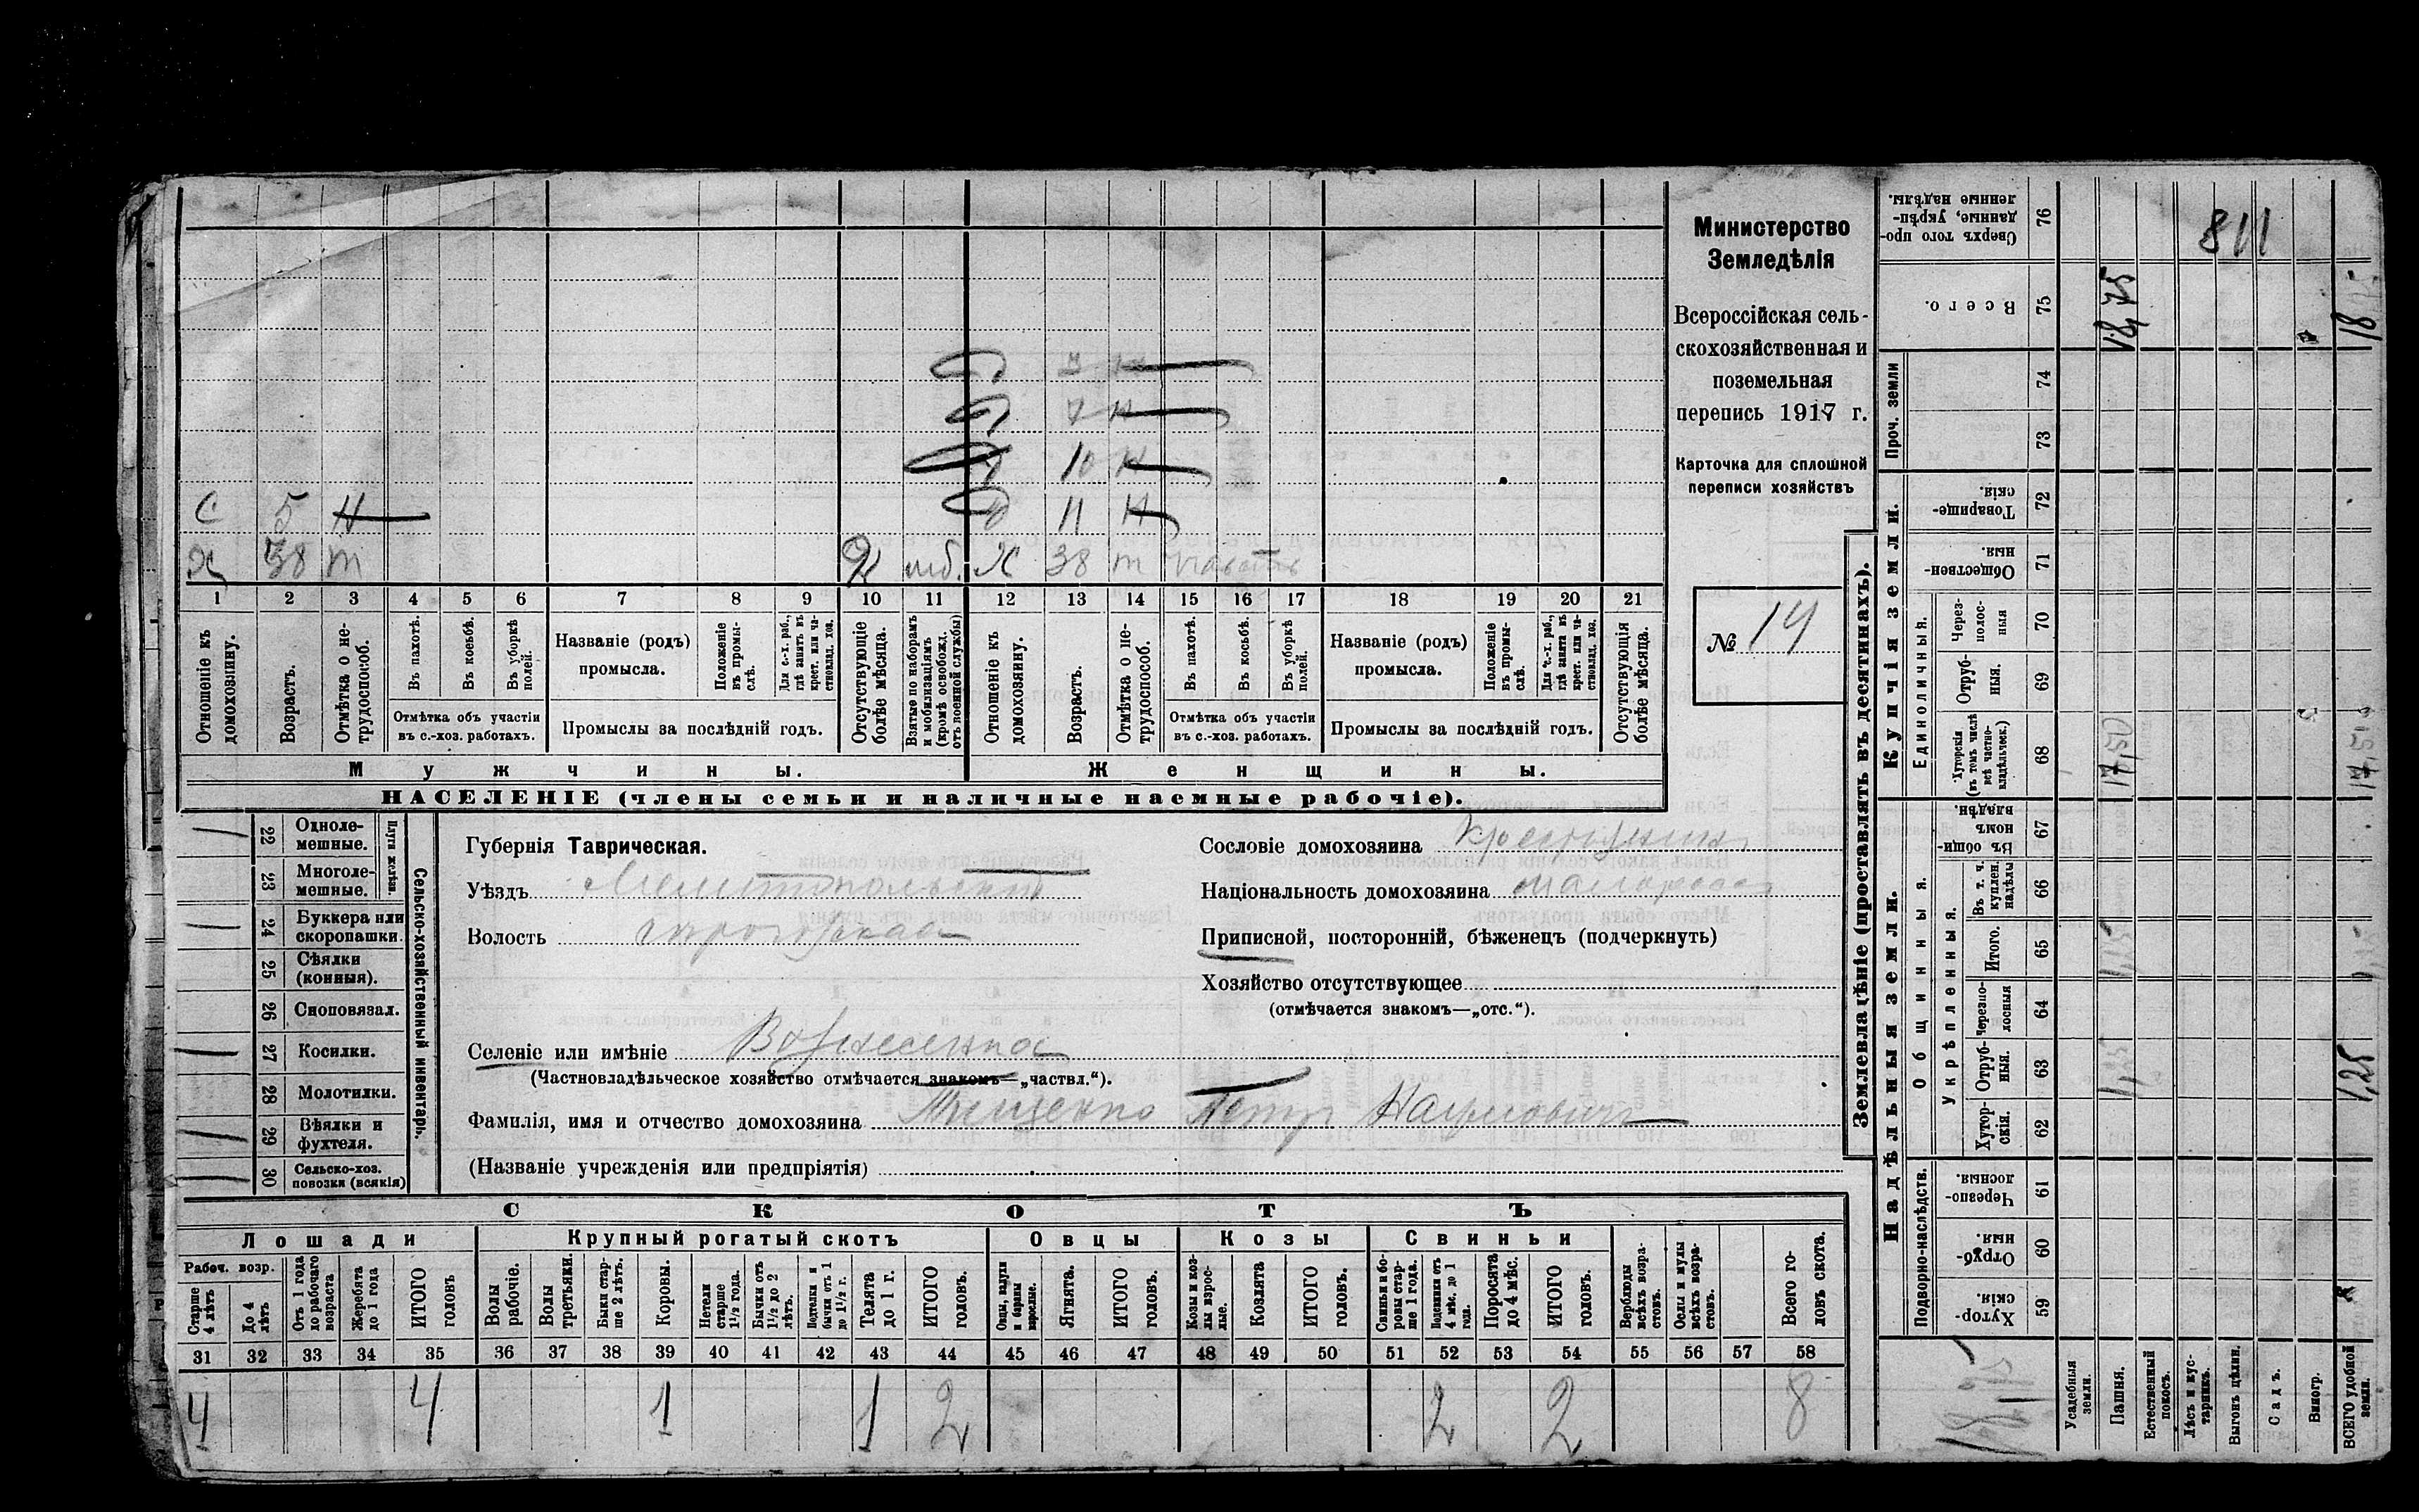 Министерство
Земледѣлія
Всероссійская сель-
скохозяйственная и
поземельная
перепись 1917 г.
Карточка для сплошной
переписи хозяйствъ
№ 14
3 Н
7 Н
10 Н
С 5 Н д 11 Н
Х 38 т моб. Х 38 т
1 2 3 4 5 6 7 8 9 10 11 12 13 14 15 16 17 18 19 20 21
Отношеніе къ домохозяину.
Возрастъ.
Отмѣтка о не-трудоспособ.
Въ пахотѣ.
Въ косьбѣ.
Въ уборкѣ полей.
Отмѣтка объ участіи
въ с.-хоз. работахъ.
Названіе (родъ)
промысла.
Положеніе въ промы-слѣ.
Для с.-х. раб., гдѣ занятъ въ крест. или ча-стновлад. хоз.
Промыслы за послѣдній годъ.
Отсутствующіе болѣе мѣсяца.
Взятые по наборамъ и мобилизаціямъ (кромѣ освобожд. отъ военной службы)
Отношеніе къ домохозяину.
Возрастъ.
Отмѣтка о не-трудоспособ.
Въ пахотѣ.
Въ косьбѣ.
Въ уборкѣ полей.
Отмѣтка объ участіи
въ с.-хоз. работахъ.
Названіе (родъ)
промысла.
Положеніе въ промы-слѣ.
Для с.-х. раб., гдѣ занята въ крест. или ча-стновлад. хоз.
Промыслы за послѣдній годъ.
Отсутствующія болѣе мѣсяца.
Мужчины. Женщины.
НАСЕЛЕНІЕ (члены семьи и наличные наемные рабочіе).
22 Одноле-мешные.
23 Многоле-мешные.
Плуги желѣзн.
24 Буккера или скоропашки.
25 Сѣялки (конныя).
26 Сноповязал.
27 Косилки.
28 Молотилки.
29 Вѣялки и фухтеля.
30 Сельско-хоз. повозки (всякія)
Сельско-хозяйственный инвентарь.
Губернія Таврическая.
Уѣздъ Мелитопольскій
Волость
Сословіе домохозяина крестьянин
Національность домохозяина малоросс
Приписной, посторонній, бѣженецъ (подчеркнуть)
Хозяйство отсутствующее
(отмѣчается знакомъ—„отс.“).
Селеніе или имѣніе Вознесенка
(Частновладѣльческое хозяйство отмѣчается знакомъ—„частвл.“).
Фамилія, имя и отчество домохозяина Тищенко Петр Наумович
(Названіе учрежденія или предпріятія)
СКОТЪ
Лошади Крупный рогатый скотъ Овцы Козы Свиньи
Рабоч. возр.
Старше 4 лѣтъ
До 4 лѣтъ
Отъ 1 года до рабочаго возраста
Жеребята до 1 года
ИТОГО головъ
Волы рабочіе.
Волы третьяки.
Быки стар-ше 2 лѣтъ.
Коровы.
Нетели старше 1½ года.
Бычки отъ 1½ до 2 лѣтъ.
Подтелки и бычки отъ 1 до 1½ г.
Телята до 1 г.
ИТОГО головъ.
Овцы, валухи и бараны взрослые.
Ягнята.
ИТОГО головъ.
Козы и коз-лы взрос-лые.
Козлята
ИТОГО головъ.
Свиньи и бо-ровы стар-ше 1 года.
Подсвинки отъ 4 мѣс. до 1 года.
Поросята до 4 мѣс.
ИТОГО головъ.
Верблюды всѣхъ возра-стовъ.
Ослы и мулы всѣхъ возра-стовъ.
Всего го-ловъ скота.
31 32 33 34 35 36 37 38 39 40 41 42 43 44 45 46 47 48 49 50 51 52 53 54 55 56 57 58
4 4 1 1 2 2 2 8
Землевладѣніе (проставлять въ десятинахъ).
Надѣльныя земли. Купчія земли. Проч. земли
Подворно-наслѣдств.
Общинныя.
Укрѣпленныя.
Единоличныя.
Хутор-скія. 59
Отруб-ныя. 60
Черезпо-лосныя 61
Хутор-скія. 62
Отруб-ныя. 63
Черезпо-лосныя 64
Итого. 65
Въ т. ч. куплен. надѣлы 66
Въ общин-номъ владѣн. 67
Хуторскія (въ томъ числѣ всѣ частно-владѣльческ.) 68
Отруб-ныя. 69
Через-полос-ныя 70
Обществен-ныя 71
Товарище-скія. 72
73
74
Всего. 75
Сверхъ того про-данные, укрѣп-ленные надѣлы. 76
Усадебныя земли.
Пашня.
Естественный покосъ.
Лѣсъ и кус-тарникъ.
Выгонъ цѣлин.
Садъ.
Виногр.
ВСЕГО удобной земли.
811
18,75
17,50
1,25
17,50
1,25
18,75